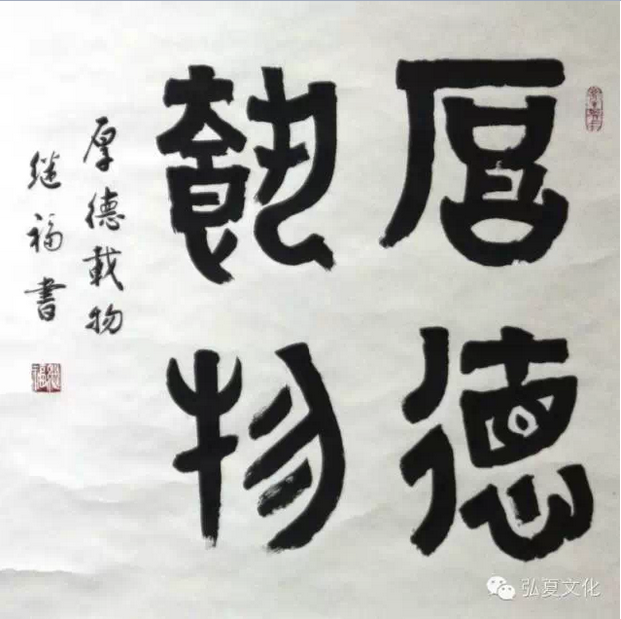 厚德
載物
厚德載物
继福書
弘夏文化